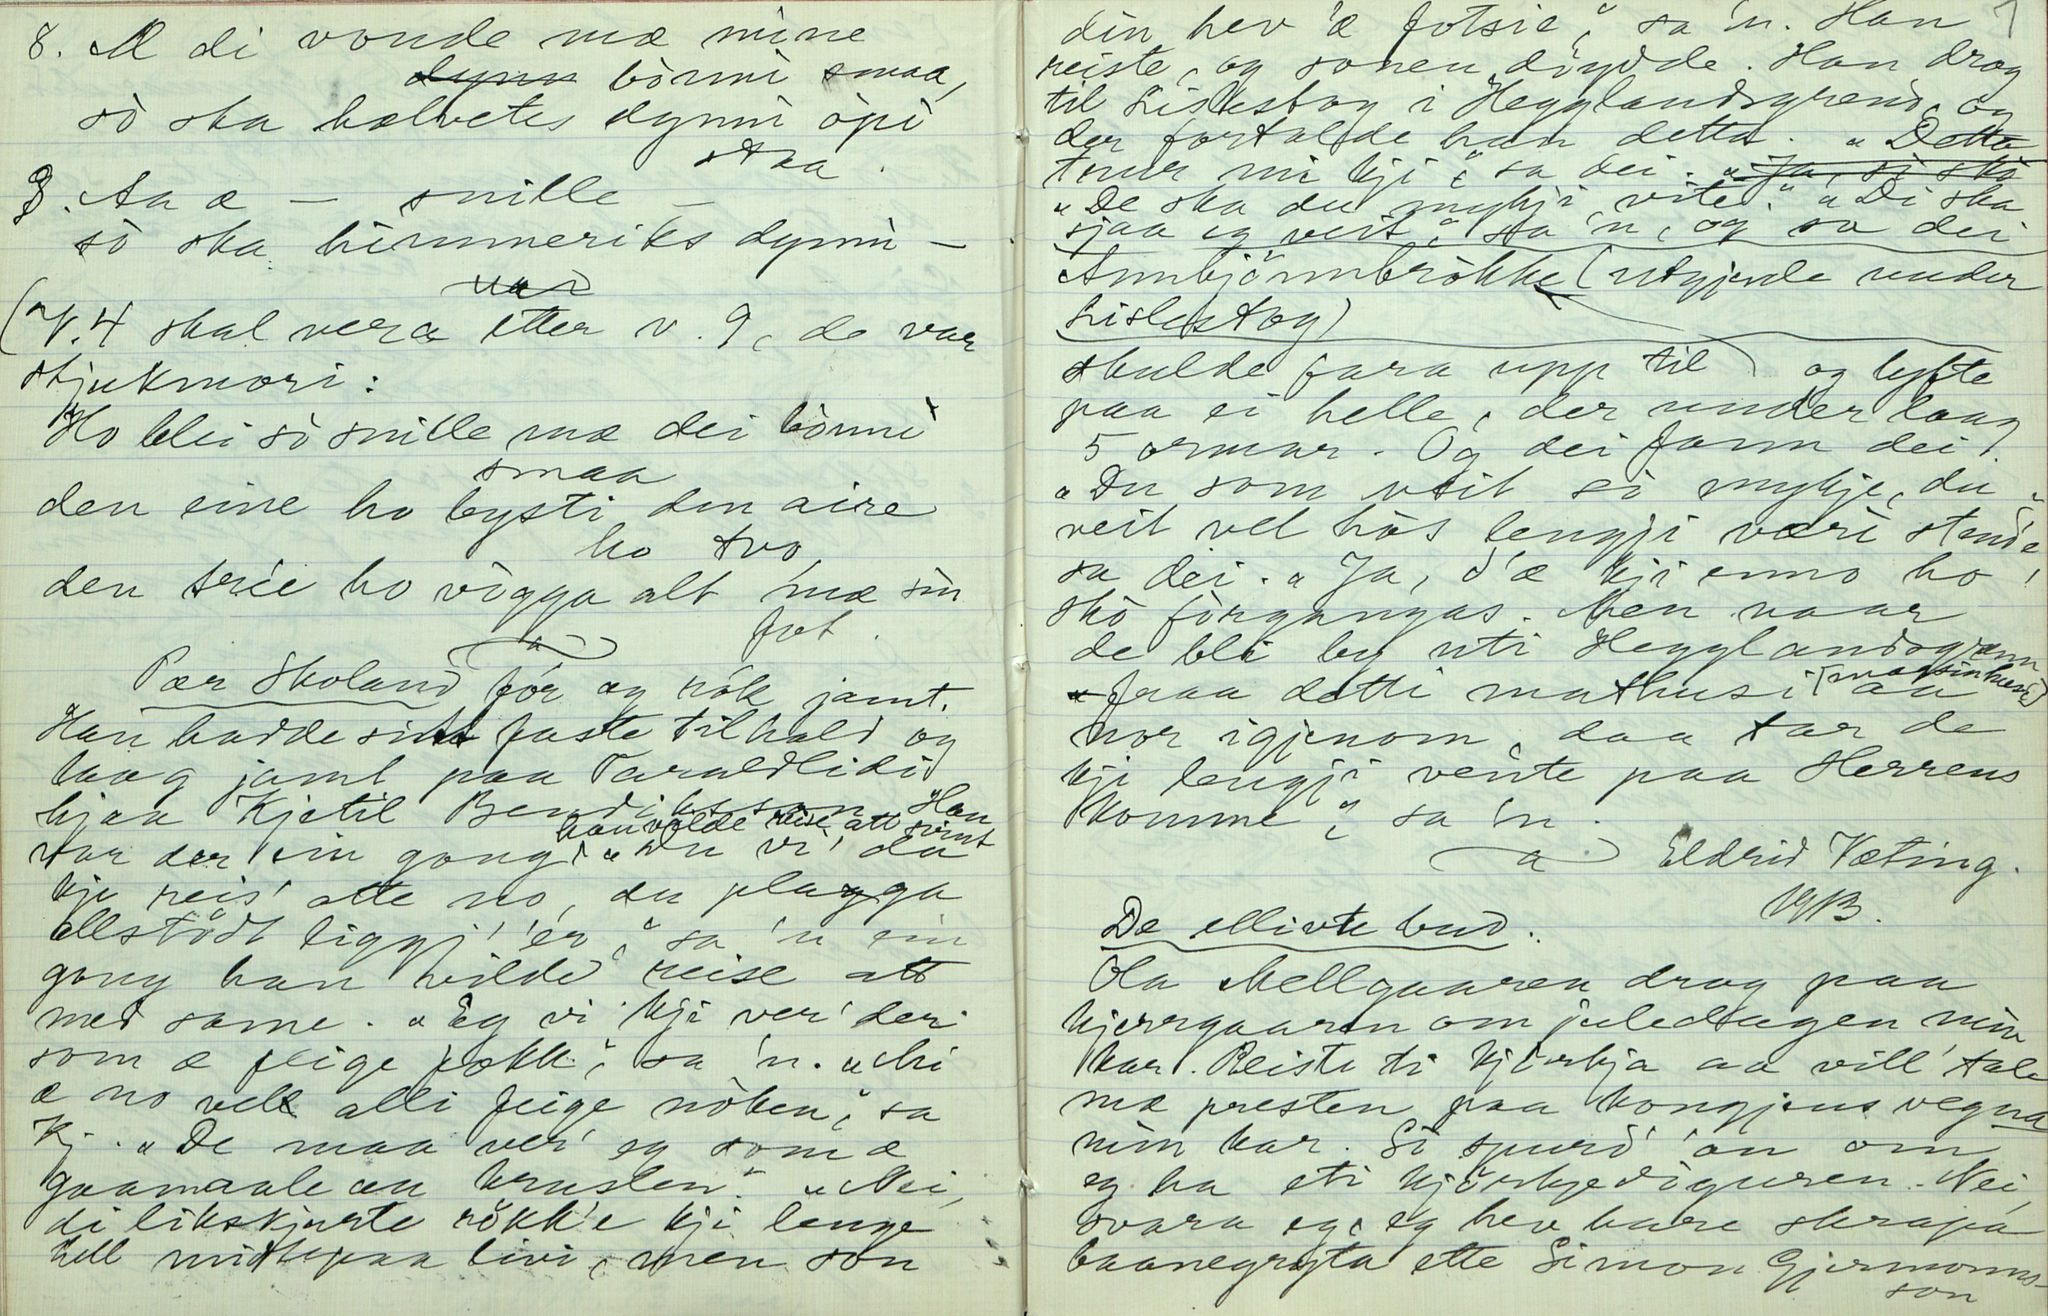 8. Æ di vonde mæ mine
dynn bònni smaa,
sò ska helvetes dynni òpi
staa.
9. Aa æ — snille —
sò ska himmeriks dynni —
(V. 4 skal vera etter v. 9, de var
stjukmori:
Ho blei sò snille mæ dei bònni
smaa
den eine ho bysti den aire
ho tvo
den trie ho vògga alt mæ sin
fot.
Pær Skoland fór og rók jamt.
Han hadde sitt faste tilhald og
laag jamt paa Taraldlidi
hjaa Kjetil Bendiksson. Han
han vilde reise att svint
var der ein gong. "Du vi' då
kji reis' atte no, du plagga
allstødt liggj' 'er," sa 'n ein
gong han vilde reise att
med same. "Eg vi kji ver' der
som æ feige fokk," sa 'n. "Mi
æ no vel alli feige nòken," sa
Kj. "De maa ver' eg som æ
gaamaale aa kruslen." "Nei,
di likskjurte ròkk'e kji lenge
hell midt paa livi, men son
din hev 'æ fotsie," sa 'n. Han
reiste, og sonen døydde. Han drog
til Lislestog i Hegglandsgrend, og
der fortalde han detta. "Detta
truer mi kji," sa dei. "Ja, sò skò
"De ska du mykji vite." "Di ska
sjaa eg veit," sa 'n, og sa dei
Annbjønnbròkke (utgjerde under
Lislestog)
skulde fara upp til og lyfte
paa ei helle, der under laag
5 ormar. Og dei fann dei.
"Du som veit so mykje, du
veit vel hòs lengji væri stende,"
sa dei. "Ja, d'æ kji enno ho
skò fòrgangas. Men naar
de bli by uti Hegglandsgrenn
fraa detti mathusi (matsinhusi) aa
nor igjenom, daa tar de
kji lengji vente paa Herrens
komme," sa 'n.
Eldrid Væting.
De ellivte bud.
Ola Mellgaaren drog paa
kjerrgaaren om juledagen min
kar. Reiste ti kjørkja aa vill' tale
mæ presten paa kongjens vegna
min kar. Sò spurd' 'an om
eg ha eti kjørkjedøguren. Nei,
svara eg, eg hev bare skrapa
baanegryta ette Simon Gjermonns-
son